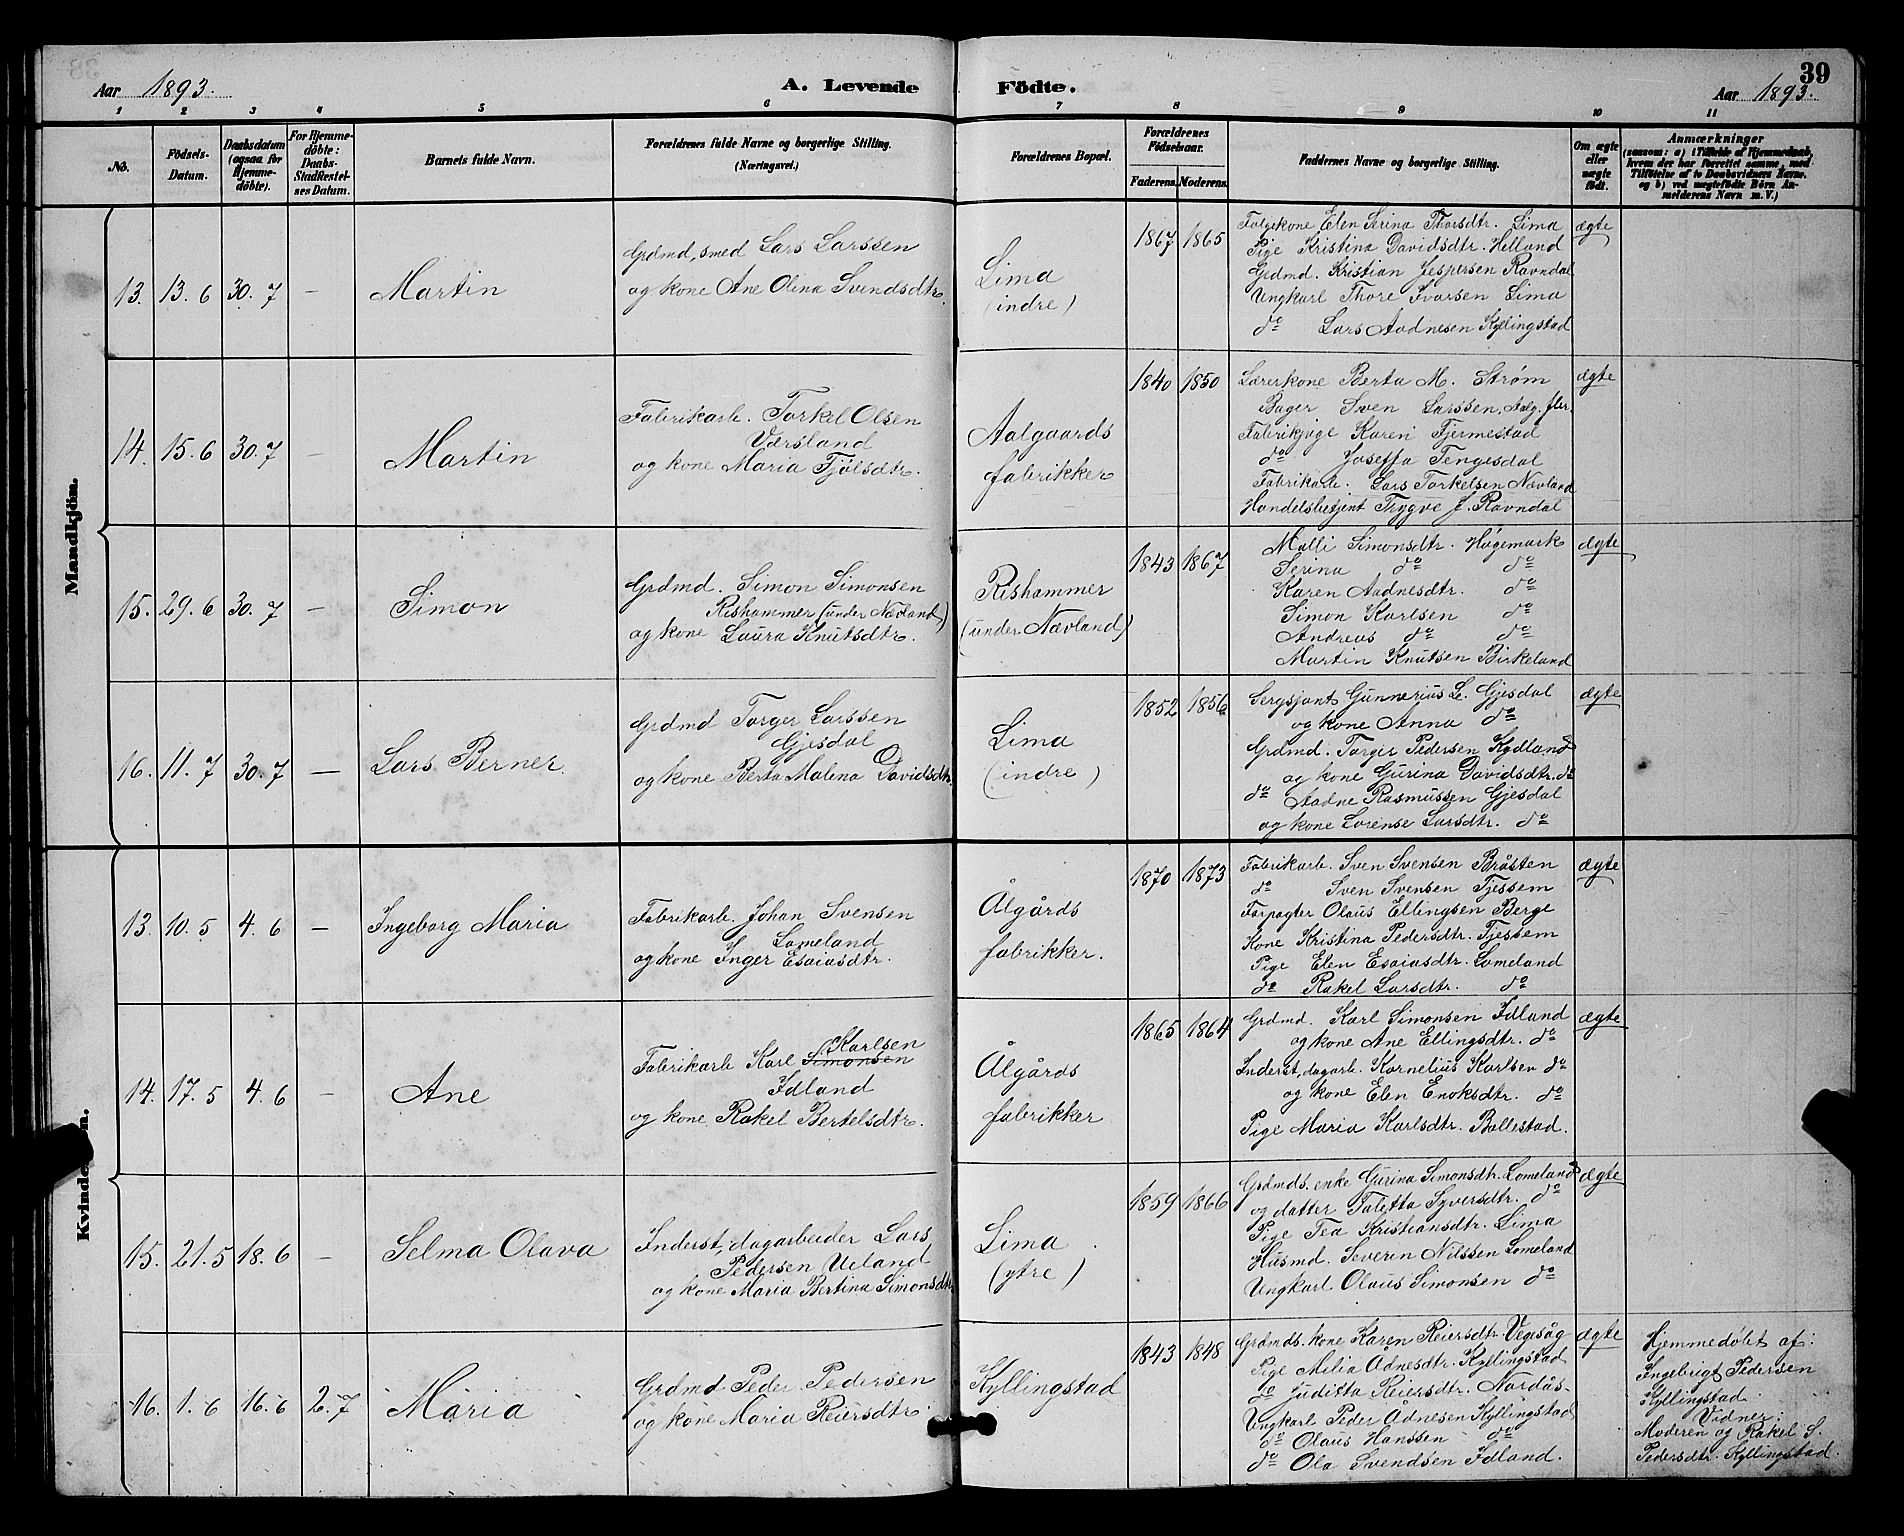 Aar 1893.
A. Levende
Födte.
39
Aar 1893.
1 2 3 4 5 6 7 8 9 10 11
No.
Födsels-
Datum.
Daabsdatum
(ogsaa for
Hjemme-
döbte).
For Hjemme-
döbte:
Daabs-
Stadfæstel-
ses Datum.
Barnets fulde Navn.
Forældrenes fulde Navne og borgerlige Stilling.
(Næringsvei.)
Forældrenes Bopæl.
Forældrenes
Födselsaar.
Faderens. Moderens.
Faddernes Navne og borgerlige Stilling.
Om ægte
eller
uægte
födt.
Anmærkninger
(saasom: a) i Tilfælde af Hjemmedaab,
hvem der har forrettet samme, med
Tilföielse af to Daabsvidners Navne,
og b) ved uægtefödte Börn An-
melderens Navn m. V.)
Mandkjön.
13. 13. 6 30. 7 —
Martin
Grdmd, smed Lars Larssen
og kone Ane Olina Svendsdtr.
Lima
(indre)
1867 1865
Følgekone Elen Serina Thorsdtr. Lima
Pige Kristina Davidsdtr. Helland
Grdmd. Kristian Jespersen Ravndal
Ungkarl Thore Ivarsen Lima
do Lars Aadnesen Kyllingstad
ægte
14. 15. 6 30. 7 —
Martin
Fabrikarb. Torkel Olsen
Værsland
og kone Maria Tjölsdtr.
Aalgaards
fabrikker
1840 1850
Lærerkone Berta M. Strøm
Bager Sven Larssen, Aalg. fbr.
Fabrikpige Karen Fjermestad
do Josefa Tengesdal
Fabrikarb. Lars Torkelsen Nævland
Handelsbetjent Trygve J. Ravndal
ægte
15. 29. 6 30. 7 —
Simon
Grdmd. Simon Simonsen
Rishammer (under Nævland)
og kone Laura Knutsdtr.
Rishammer
(under Nævland)
1843 1867
Malli Simonsdtr. Høgemark
Serina do do
Karen Aadnesdtr. do
Simon Karlsen do
Andreas do do
Martin Knutsen Birkeland
ægte
16. 11. 7 30. 7 —
Lars Berner
Grdmd Torger Larssen
Gjesdal
og kone Berta Malena Davidsdtr.
Lima
(indre)
1852 1856
Sergsjant Gunnerius L. Gjesdal
og kone Anna do
Grdmd. Torger Pedersen Kydland
og kone Gurina Davidsdtr. do
do Aadne Rasmussen Gjesdal
og kone Lorense Larsdtr. do
ægte
13. 10. 5 4. 6 —
Ingeborg Maria
Fabrikarb. Johan Svensen
Lomeland
og kone Inger Esaiasdtr.
Ålgårds
fabrikker.
1870 1873
Fabrikarb. Sven Svensen Bråsten
do Sven Svensen Tjessem
Forpagter Olaus Ellingsen Berge
Kone Kristina Pedersdtr. Tjessem
Pige Elen Esaiasdtr. Lomeland
do Rakel Larsdtr. do
ægte
14. 17. 5 4. 6 —
Ane
Karlsen
Fabrikarb Karl Simonsen
Idland
og kone Rakel Bertelsdtr.
Ålgårds
fabrikker
1865 1864
Grdmd. Karl Simonsen Idland
og kone Ane Ellingsdtr. do
Inderst, dagarb. Kornelius Karlsen do
og kone Elen Enoksdtr. do
Pige Maria Karlsdtr. Ballestad.
ægte
15. 21. 5 18. 6 —
Selma Olava
Inderst, dagarbeider Lars
Pedersen Ueland
og kone Maria Bertina Simonsdtr
Lima
(ytre)
1859 1866
Grdmds. enke Gurina Simonsdtr. Lomeland
og datter Taletta Syversdtr. do
Pige Tea Kristiansdtr. Lima
Husmd. Severin Nilssen Lomeland
Ungkarl Olaus Simonsen do
ægte
16. 1. 6 16. 6 2. 7
Maria
Grdmd Peder Pedersen
og kone Maria Reiersdtr.
Kyllingstad
1843 1848
Grdmds. kone Karen Reiersdtr. Veisåg
Pige Milia Ådnesdtr. Kyllingstad
do Juditta Reiersdtr. Nordås.
Ungkarl Peder Ådnesen Kyllingstad
do Olaus Hanssen do
do Ola Svendsen Idland.
ægte
Hjemmedøbt af:
Ingebrigt Pedersen
Kyllingstad
Vidner:
Moderen og Rakel S.
Pedersdtr. Kyllingstad.